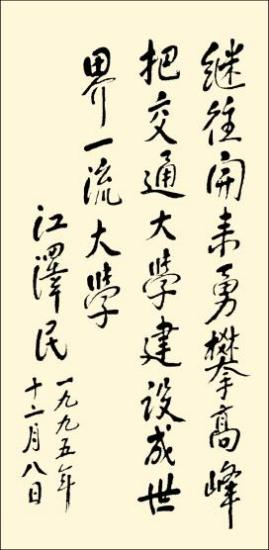 继往开来勇攀高峰
把交通大学建设成世
界一流大学
江泽民
一九九五年
十二月八日